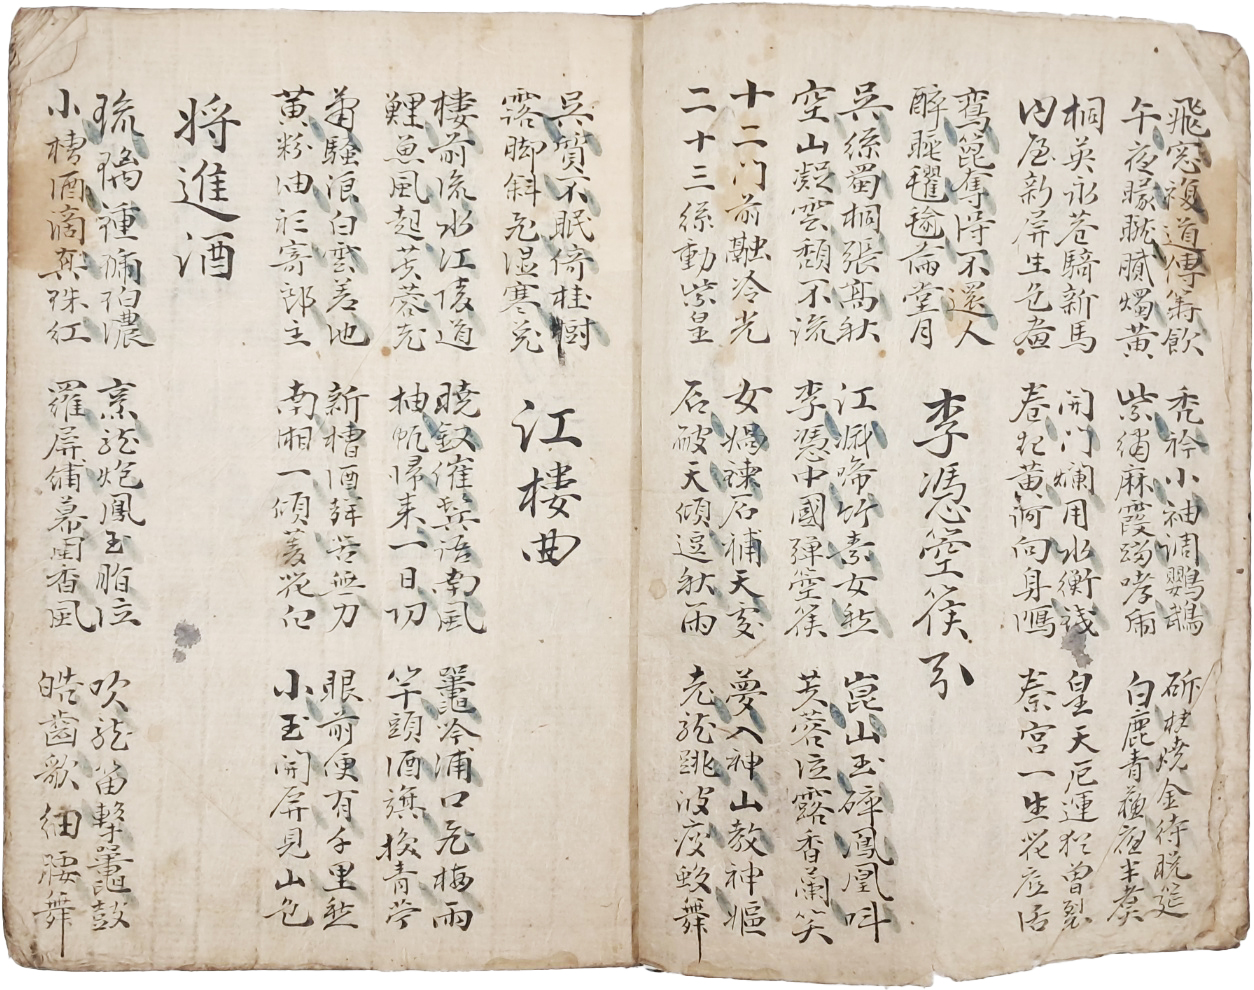 飛窓複道傳籌飲
午夜朦朧膩燭黃
禿衿小袖調鸚鵡
紫繡麻霞踏哮虎
斫桂燒金待曉筵
白鹿青蘓夜半煮
桐英永巷騎新馬
内屋新屏生色畫
開門爛用水衡錢
卷起黃河向身瀉
皇天厄運猶曾裂
秦宮一生花底活
鸞篦奪得不還人
醉睡氍毹滿堂月
李憑箜篌引
吳絲蜀桐張髙秋
空山凝雲頹不流
江娥啼竹素女愁
李憑中國彈箜篌
崑山玉碎鳳凰叫
芙蓉泣露香蘭笑
十二门前融冷光
二十三絲動紫皇
女媧煉石補天處
石破天傾逗秋雨
夢入神山教神嫗
老龍跳波瘦蛟舞
吳質不眠倚桂樹
露脚斜飛湿寒兔
江樓曲
樓前流水江陵道
鯉魚風起芙蓉老
曉釵催鬂語南風
抽帆歸来一日功
鼉吟浦口飛梅雨
竿頭酒旗換青苧
蕭騷浪白雲差池
黄粉油衫寄郎主
新槽酒聲苦無力
南湖一傾菱花白
眼前便有千里愁
小玉開屏見山色
將進酒
琉璃鍾琥珀濃
小槽酒滴真珠紅
烹龍炮鳳玉脂泣
羅屏繡幕圍香風
吹龍笛擊鼉鼓
皓齒歌細腰舞